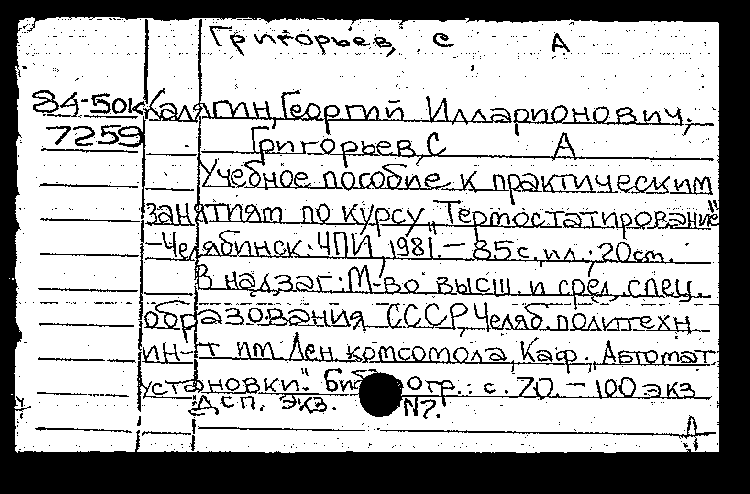 Григорьев, С А
84-50к Калягин, Георгий Илларионович,
7259 Григорьев, С А
Учебное пособие к практическим
занятиям по курсу „Термостатирование"
-Челябинск: ЧПИ, 1981.- 85 с., ил.; 20 см.
В надзаг: М-во высш. и сред. спец.
образования СССР, Челяб. политехн
ин-т им Лен комсомола, Каф. „Автомат
установки". Библиогр.: с. 70. - 100 экз
ДСП. экз. N7.